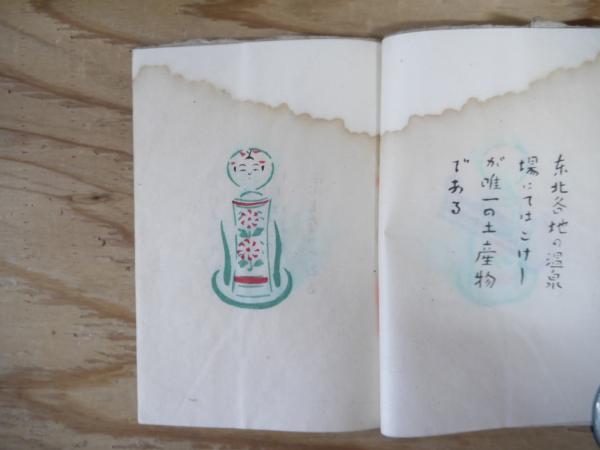 东北各地の温泉
場にてはこけし
が唯一の土産物
である